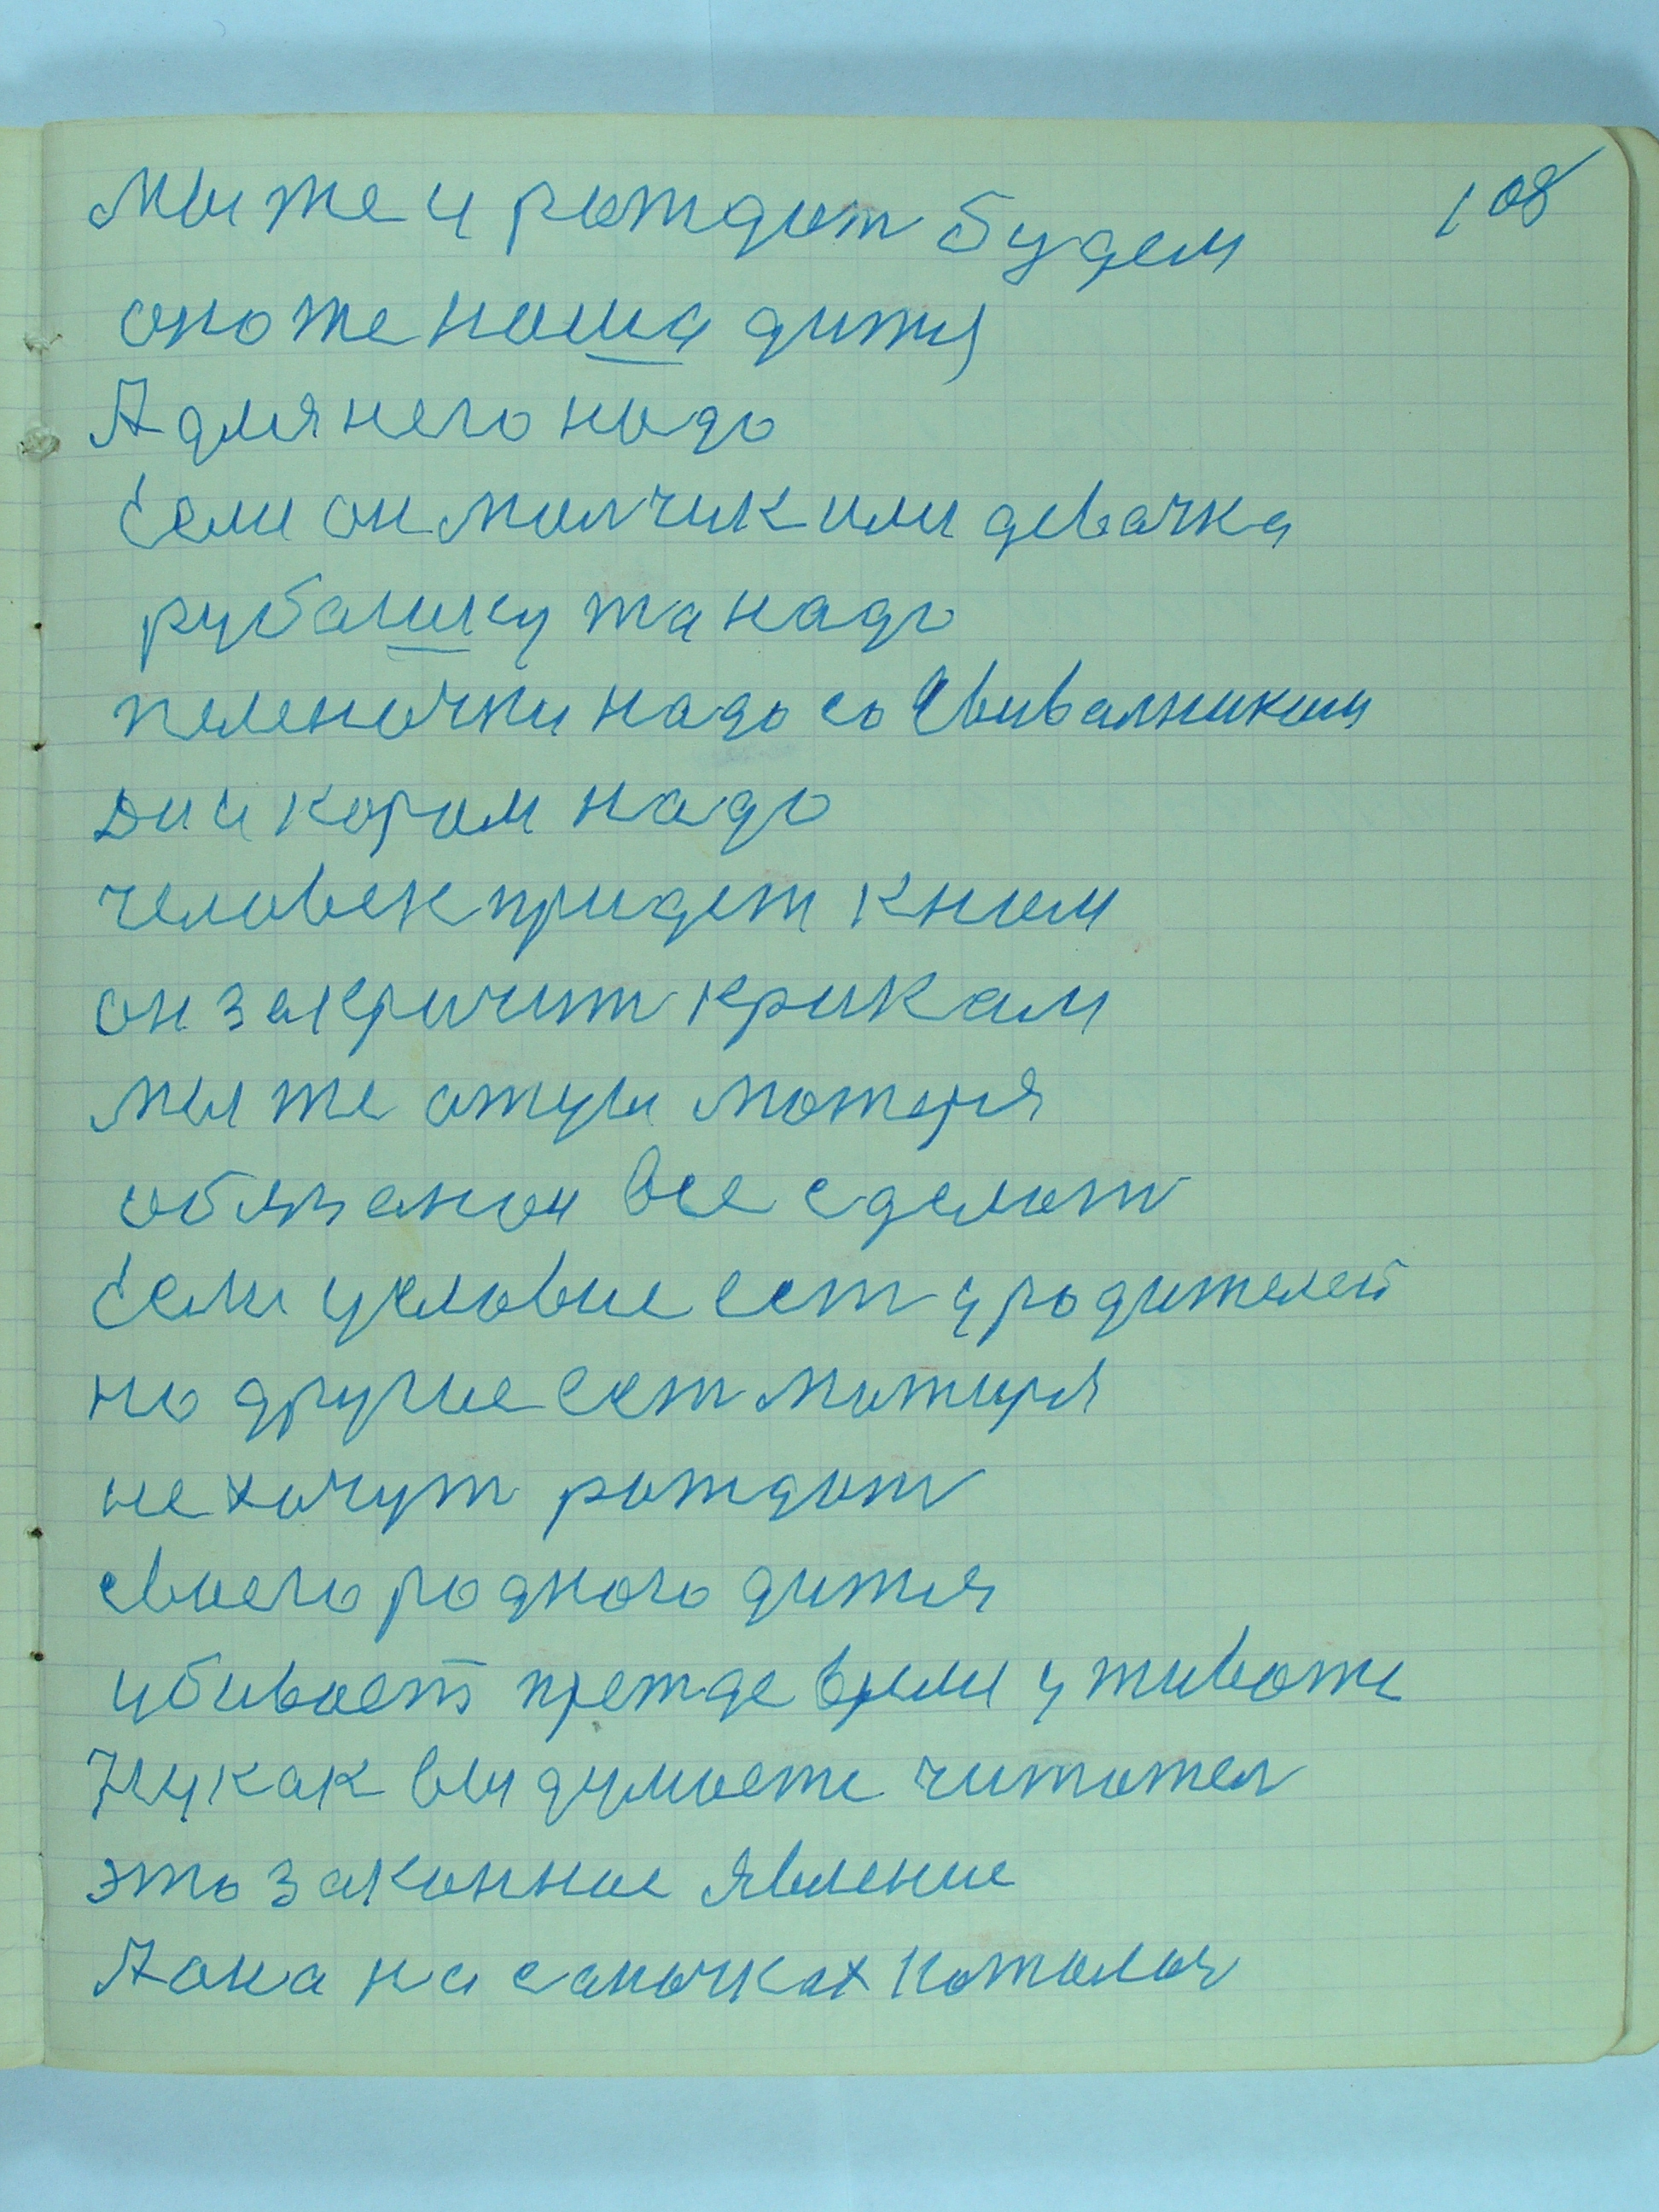 108
Мы же и рождат будем
оно же наша дитя
А для него надо
Если он малчик или девачка
рубашку та надо
пеленочки надо со свивалниками
Да и корам надо
человек придет к нам
он закричит крикам
мы же отцы матеря
обязаны все сделат
Если условие ест у родителей
но другие ест матиря
не хочут рождат
своего родного дитя
убивает прежде врем у животе
Ну как вы думаете читател
это законное явление
А она на саночках каталас